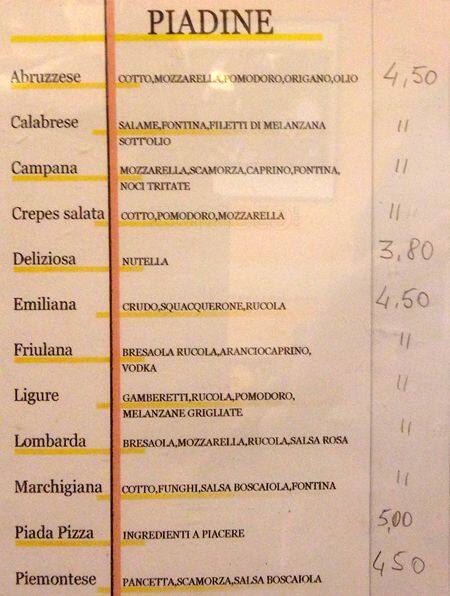 PIADINE
Abruzzese COTTO,MOZZARELLA,POMODORO,ORIGANO,OLIO 4,50
Calabrese SALAME,FONTINA,FILETTI DI MELANZANA "
SOTT'OLIO
Campana MOZZARELLA,SCAMORZA,CAPRINO,FONTINA, "
NOCI TRITATE
Crepes salata COTTO,POMODORO,MOZZARELLA "
Deliziosa NUTELLA 3,80
Emiliana CRUDO,SQUACQUERONE,RUCOLA 4,50
Friulana BRESAOLA RUCOLA,ARANCIOCAPRINO, "
VODKA
Ligure GAMBERETTI,RUCOLA,POMODORO, "
MELANZANE GRIGLIATE
Lombarda BRESAOLA,MOZZARELLA,RUCOLA,SALSA ROSA "
Marchigiana COTTO,FUNGHI,SALSA BOSCAIOLA,FONTINA "
Piada Pizza INGREDIENTI A PIACERE 5,00
Piemontese PANCETTA,SCAMORZA,SALSA BOSCAIOLA 450